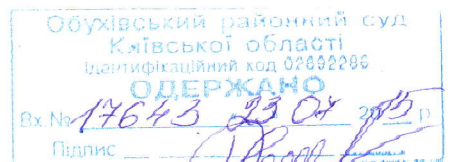 Обухівський районний суд
Київської області
Ідентифікаційний код 02892286
ОДЕРЖАНО
Вх.№ 17643 23 07 2015 р
Підпис